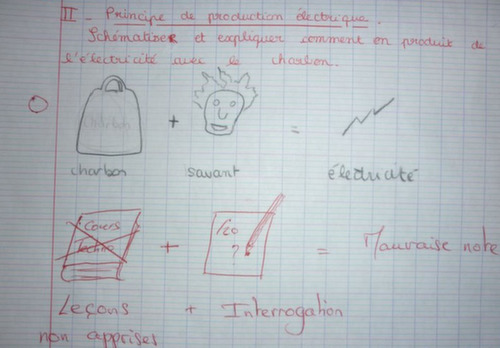 II - Principe de production électrique.
Schématiser et expliquer comment on produit de
l'électricité avec le charbon.
charbon
+
=
charbon savant électricité
Cours
Techno
+
/20
?
= Mauvaise note
Leçons + Interrogation
non apprises